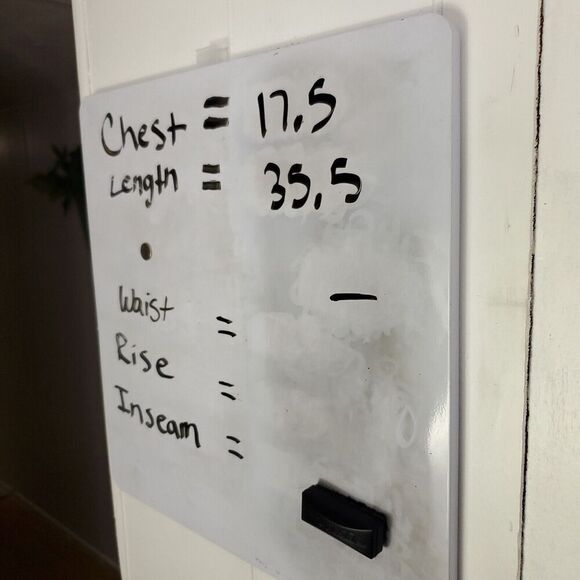 Chest = 17.5
Length = 35.5
Waist = —
Rise =
Inseam =